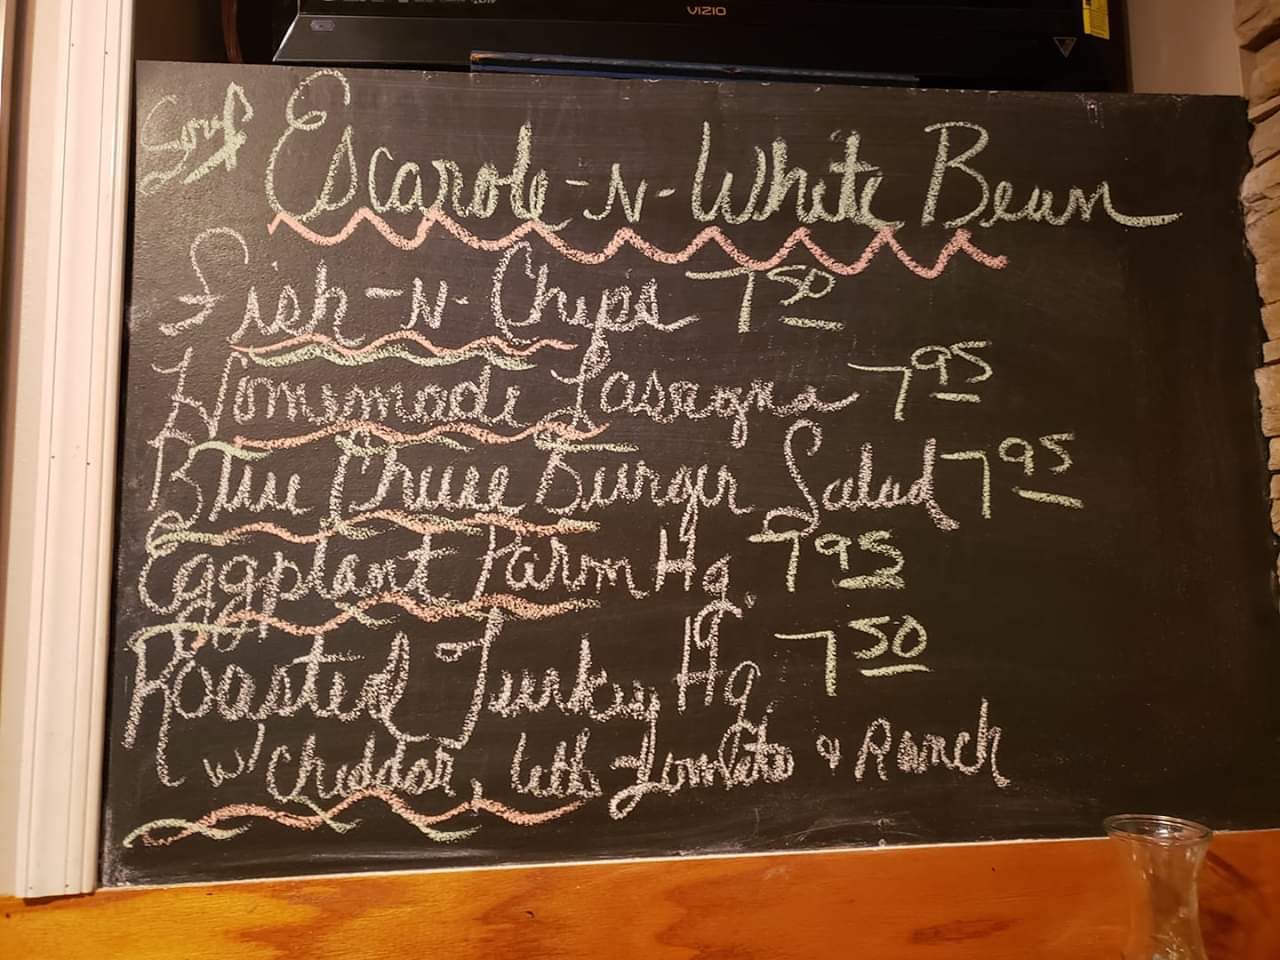 VIZIO
Soup Escarole-N-White Bean
Fish-N-Chips 7 50
Homemade Lasagna 7 95
Blue Cheese Burger Salad 7 95
Eggplant Parm Hg. 7 95
Roasted Turkey Hg 7 50
(w/ Cheddar, Lett Tomato & Ranch